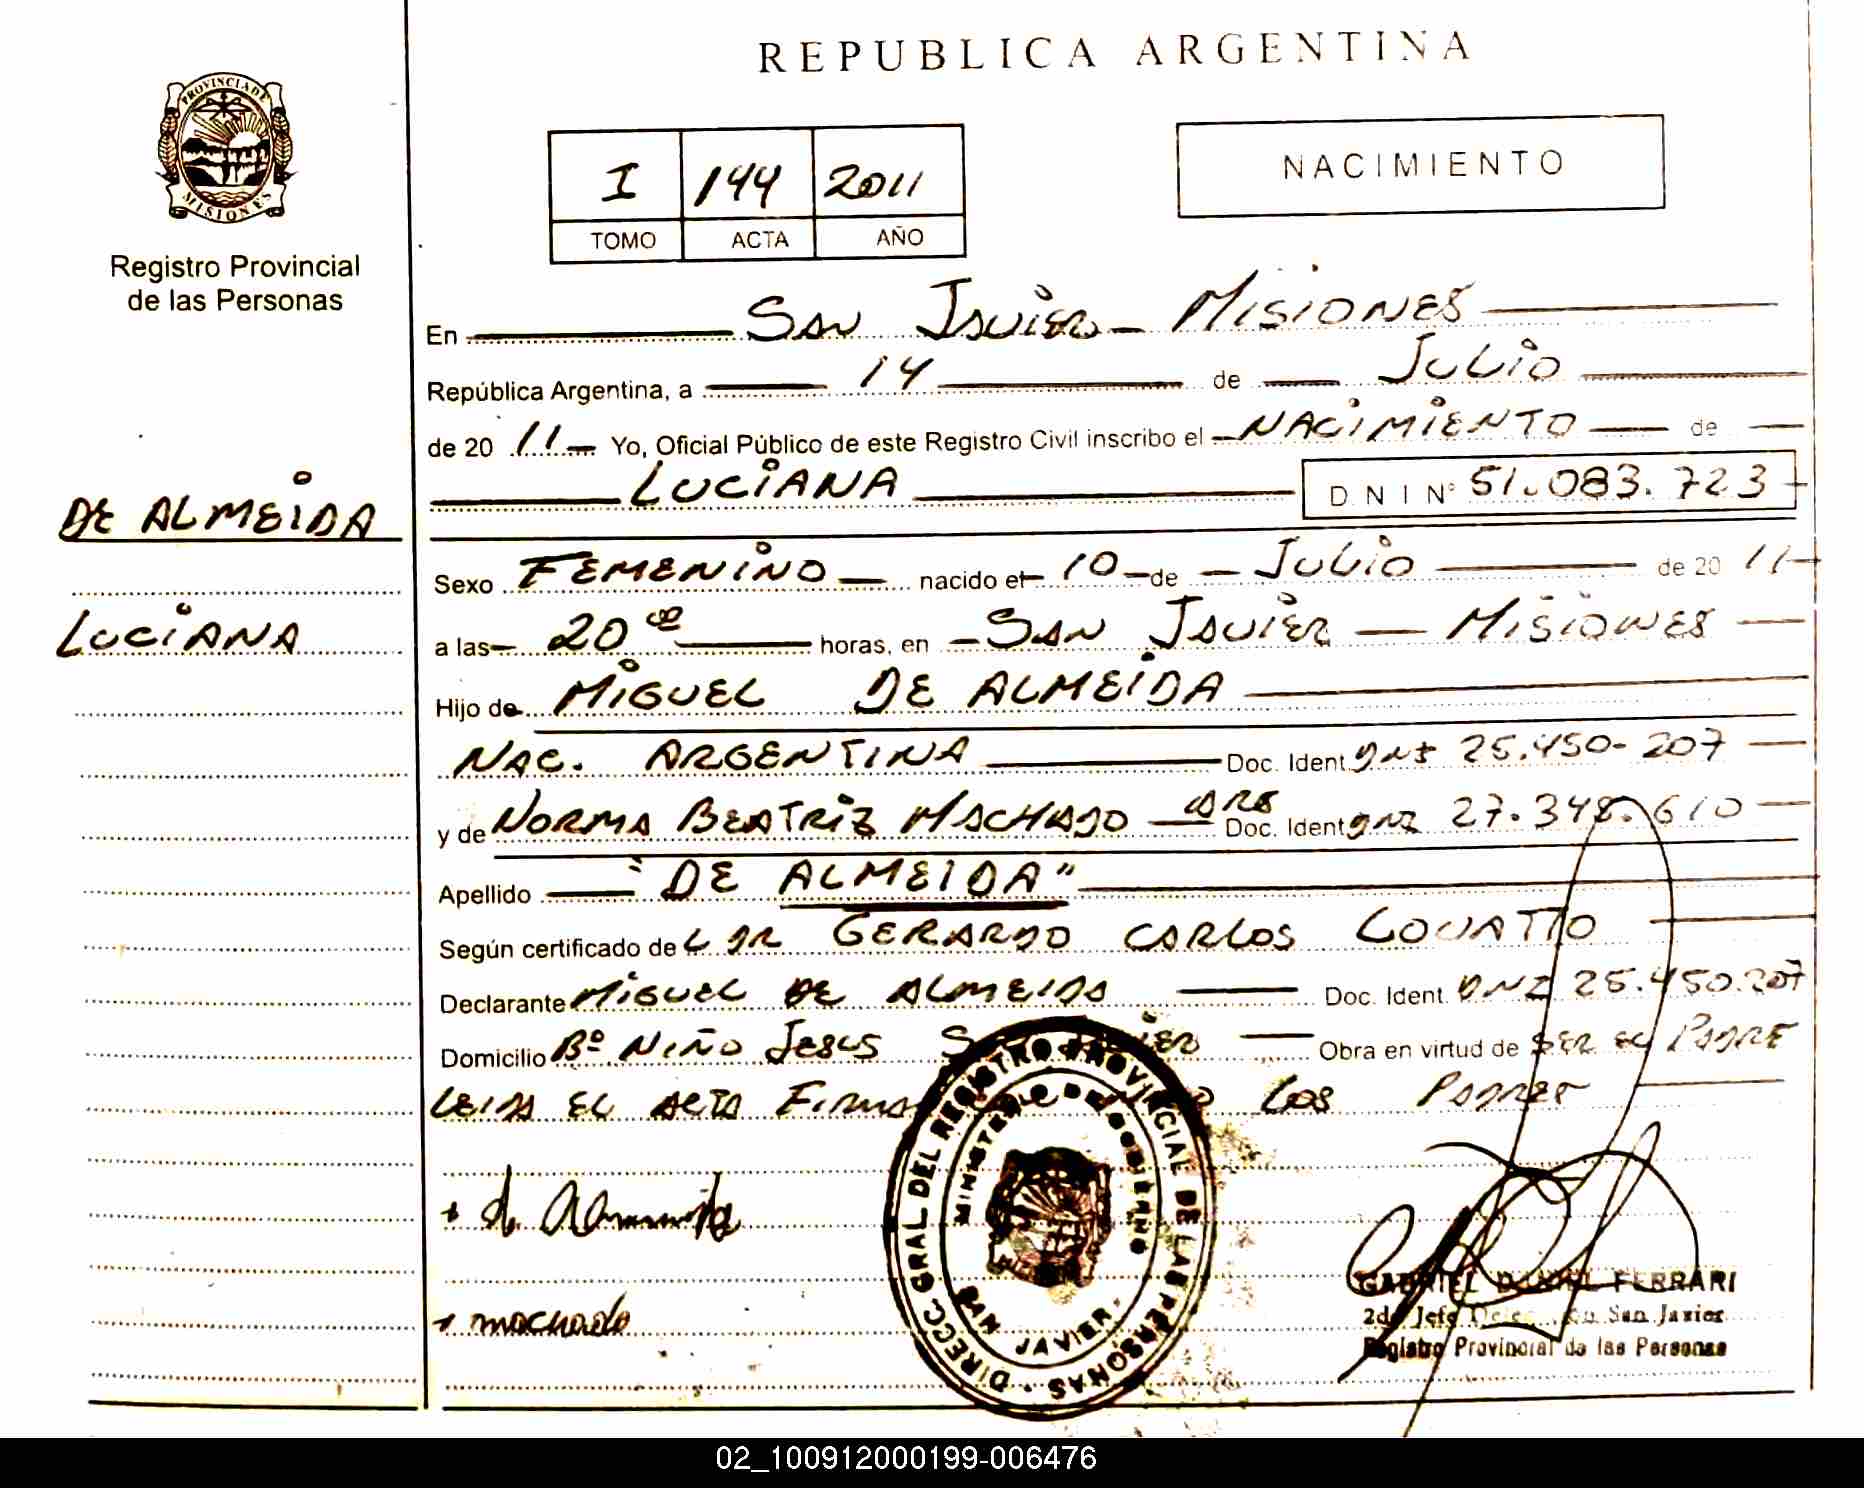 REPUBLICA ARGENTINA
PROVINCIA DE
MISIONES
Registro Provincial
de las Personas
I 144 2011
TOMO ACTA AÑO
NACIMIENTO
En San Javier - Misiones
República Argentina, a 14 de Julio
de 20 11 Yo, Oficial Público de este Registro Civil inscribo el NACIMIENTO de
LUCIANA D N I Nº 51.083.723
DE ALMEIDA
LUCIANA
Sexo FEMENINO nacido el 10 de Julio de 20 11
a las 20 horas, en San Javier - Misiones
Hijo de MIGUEL DE ALMEIDA
NAC. ARGENTINA Doc. Ident. DNI 25.450.207
y de NORMA BEATRIZ MACHADO ARG Doc. Ident DNI 27.348.610
Apellido "DE ALMEIDA"
Según certificado de L DR GERARDO CARLOS LOVATTO
Declarante MIGUEL DE ALMEIDA Doc. Ident. DNI 25.450.207
Domicilio Bº NIÑO JESUS Obra en virtud de SER EL PADRE
LEIDA EL ACTA LOS PADRES
DIRECC. GRAL DEL REGISTRO PROVINCIAL DE LAS PERSONAS
MINISTERIO DE GOBIERNO
SAN JAVIER
+ de Almeida
+ machado
GABRIEL DANIEL FERRARI
2do Jefe San Javier
Registro Provincial de las Personas
02_100912000199-006476